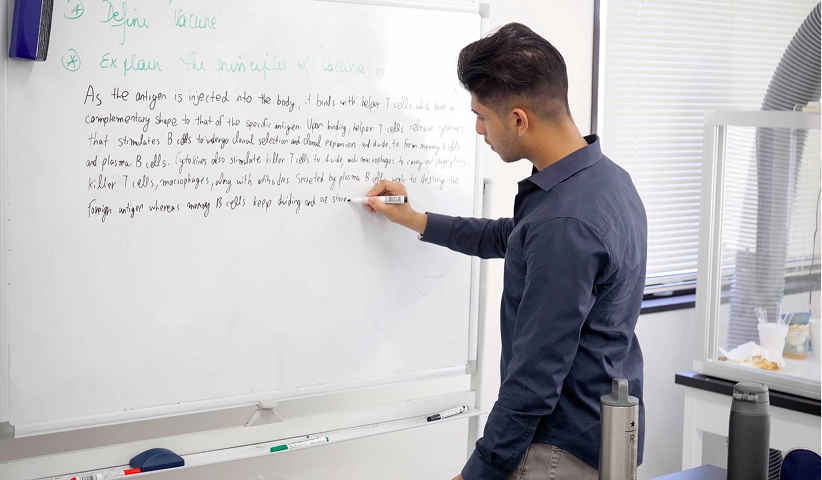 * Define 'Vaccine'
* Explain the principles of vaccination
As the antigen is injected into the body, it binds with helper T cells which have a
complementary shape to that of the specific antigen. Upon binding, helper T cells release cytokines
that stimulates B cells to undergo clonal selection and clonal expansion, and divide, to form memory B cells
and plasma B cells. Cytokines also stimulate killer T cells to divide and macrophages to carry out phagocytosis
killer T cells, macrophages, along with antibodies secreted by plasma B cells to destroy the
foreign antigen whereas memory B cells keep dividing and are store